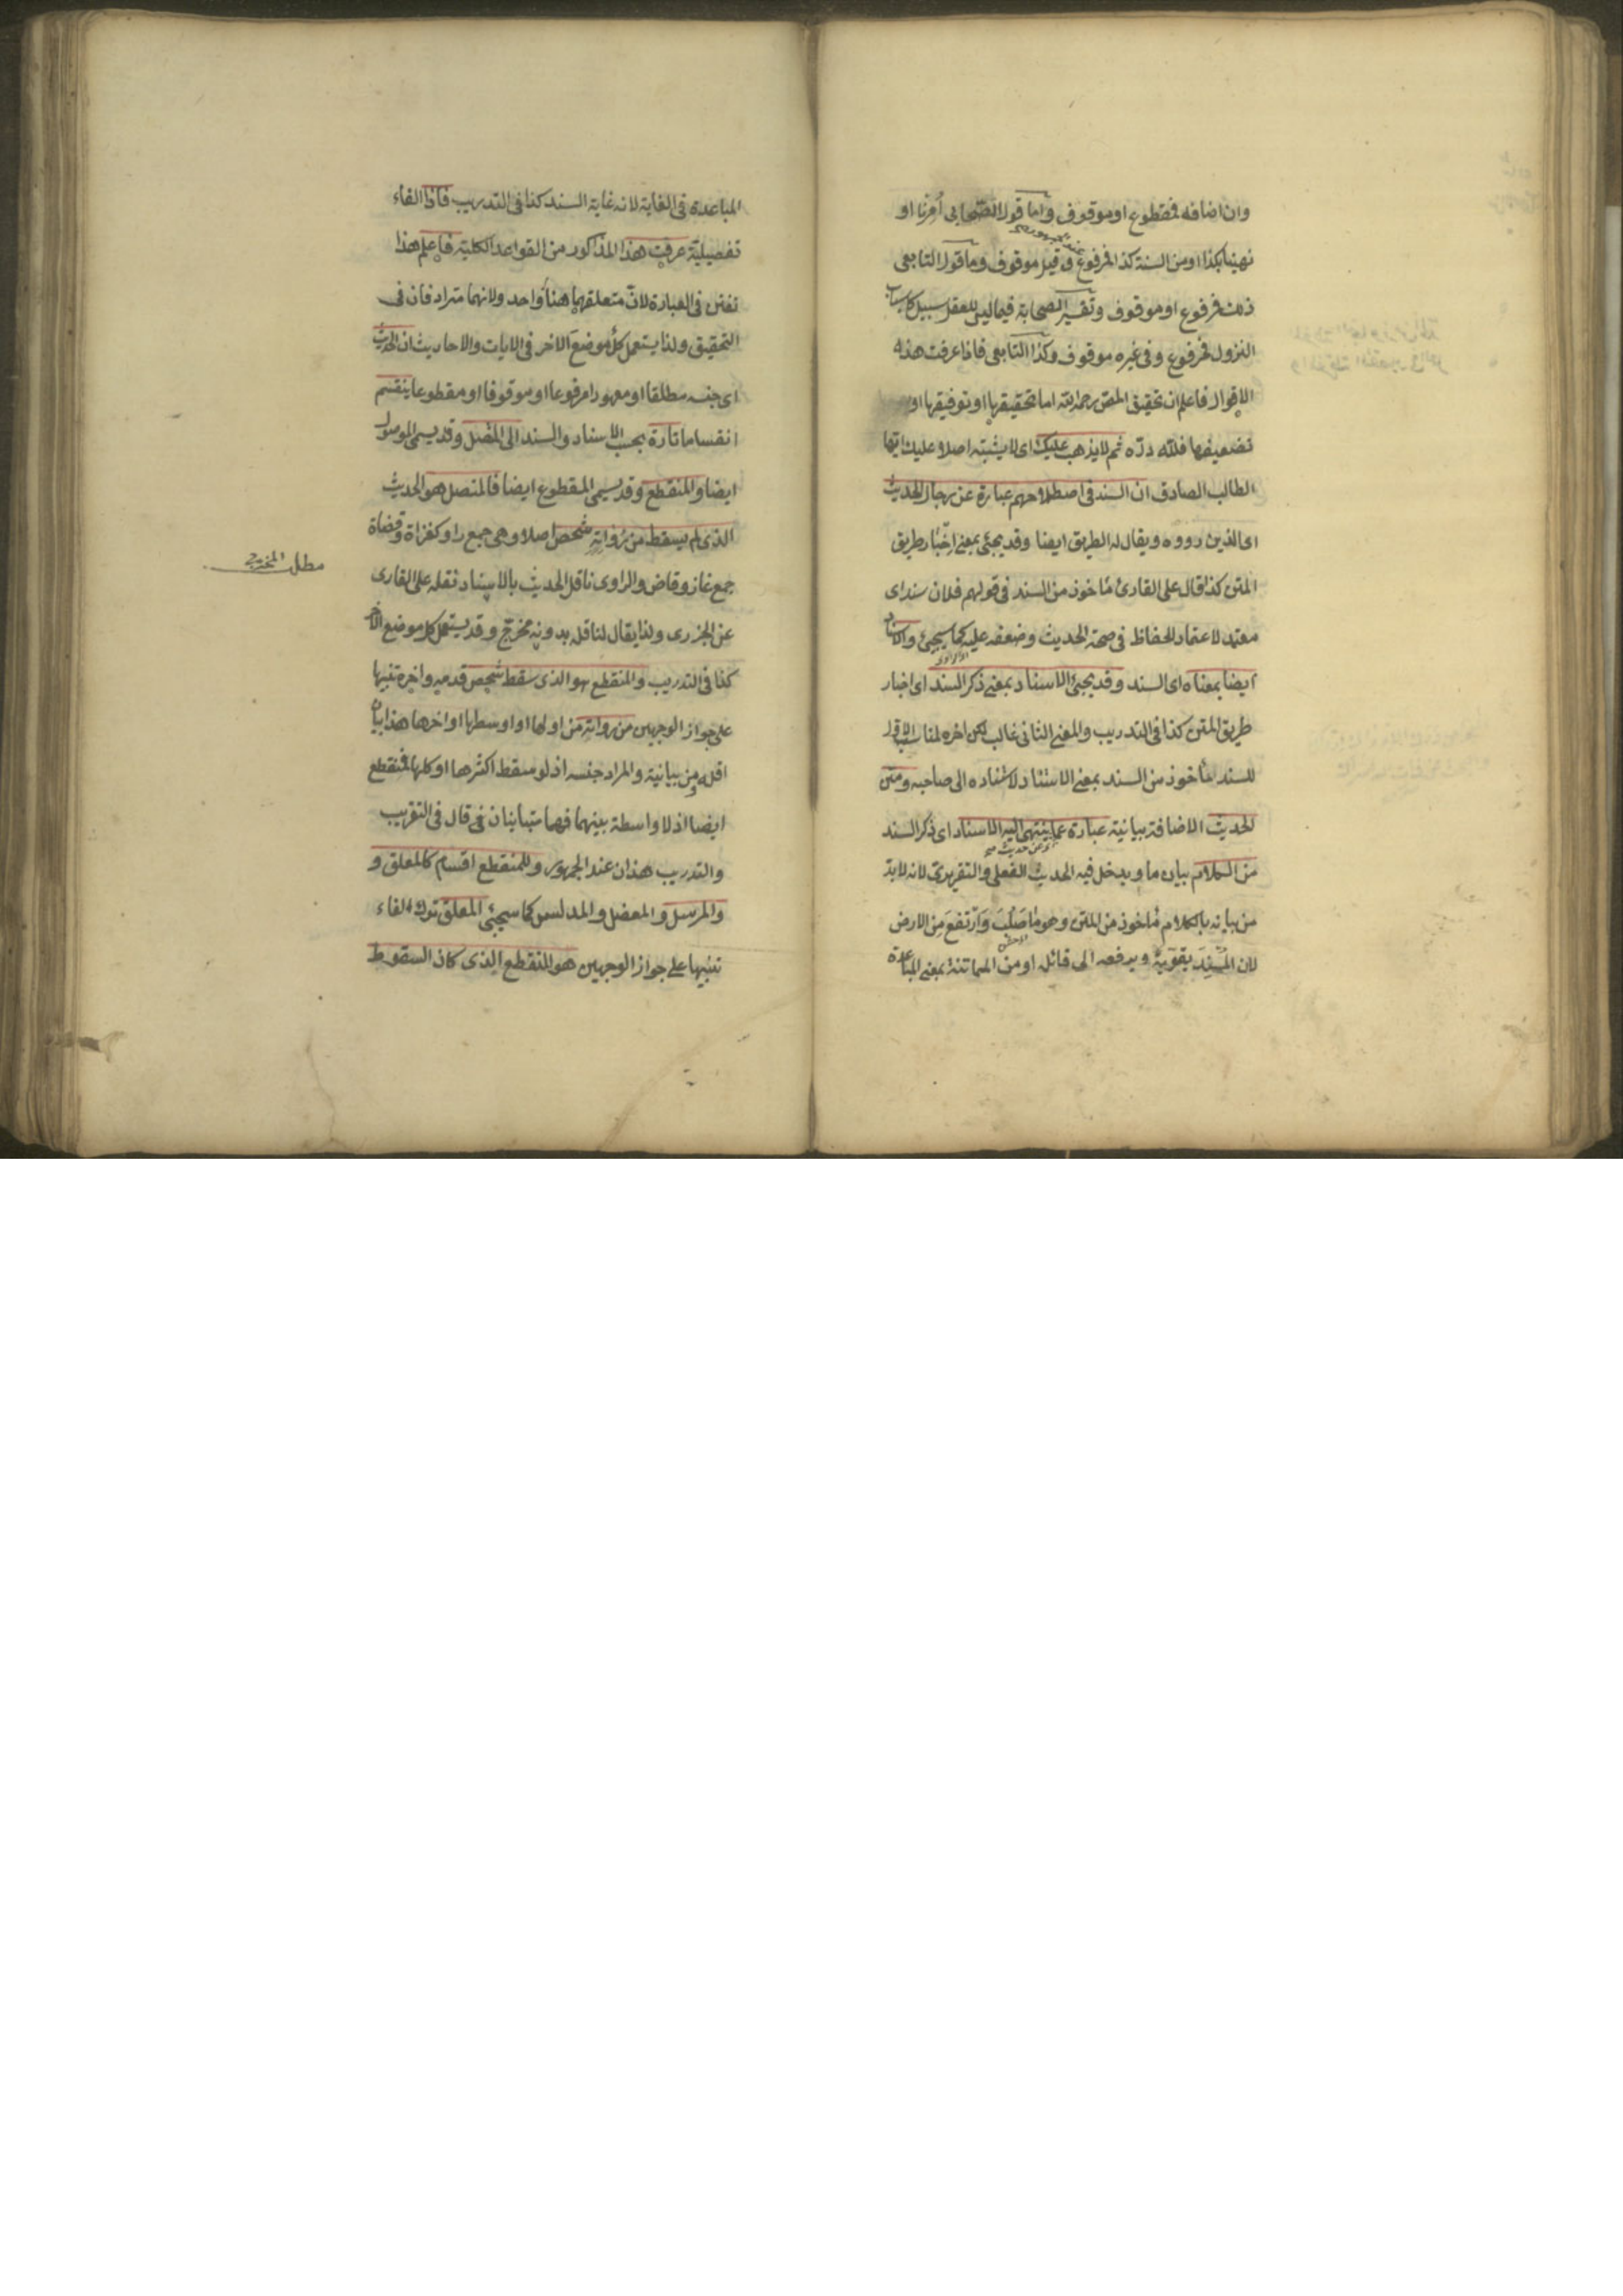 وان اضافه فمقطوع او موقوف واما قول الصحابى اُمِرنا او
عند الجمهور
نهينا بكذا او من السنة كذا المرفوع وقيل موقوف وما قول التابعى
ذلك فمرفوع او موقوف وتفسير الصحابة فيما ليس للعقل سبيل كاسباب
النزول فمرفوع وفى غيره موقوف وكذا التابعى فاذا عرفت هذه
الاقوال فاعلم ان تحقيق المص رحمه الله اما تحقيقها او توفيقها او
تضعيفها فلله درّه ثم لا يذهب عليك اى لا يشتبه اصلا عليك ايها
الطالب الصادق ان السند فى اصطلاحهم عبارة عن رجال الحديث
اى الذين رووه ويقال له الطريق ايضا وقد يجئ بمعنى اخبار طريق
المتن كذا قال على القارئ مأخوذ من السند فى قولهم فلان سند اى
معتمد لاعتماد الحفاظ فى صحة الحديث وضعفه عليه كما سيجيئ والاسناد
ايضا بمعناه اى السند وقد يجئ الاسناد بمعنى ذكر السند اى اخبار
طريق المتن كذا فى التدريب والمعنى الثانى غالب لكن اخره لمناسبة الاول
للسند مأخوذ من السند بمعنى الاستناد لاستناده الى صاحبه ومتن
الحديث الاضافة بيانية عبارة عما ينتهى اليه الاسناد اى ذكر السند
من الكلام بيان ما ويدخل فيه الحديث الفعلى والتقريرى لانه لا بد
من بيانه بالكلام مأخوذ من المتن وهو ما صَلُبَ وَارْتفعَ مِن الارض
لان المُسْنِدَ يقويه ويرفعه الى قائله او من المماتنة بمعنى المباعدة
المباعدة فى الغاية لانه غاية السند كذا فى التدريب فاذا الفاء
تفصيلية عرفت هذا المذكور من القواعد الكلية فاعلم هذا
تفنن فى العبارة لان متعلقهما هنا واحد ولانهما مترادفان فى
التحقيق ولذا يستعمل كل موضع الاخر فى الايات والاحاديث ان الحديث
اى جنسه مطلقا او معهودا مرفوعا او موقوفا او مقطوعا ينقسم
انقساما تارة بحسب الاسناد والسند الى المتصل وقد يسمى الموصول
ايضا والمنقطع وقد يسمى المقطوع ايضا فالمتصل هو الحديث
الذى لم يسقط من رواته شخص اصلا وهى جمع راو كغزاة وقضاة
جمع غاز وقاض والراوى ناقل الحديث بالاسناد نقله على القارى
مطلب المخرج
عن الجزرى ولذا يقال لناقله بدونه مخرج وقد يستعمل كل موضع الاخر
كذا فى التدريب والمنقطع هو الذى سقط شخص قدمه واخره تنبيها
على جواز الوجهين من رواته من اولها او اوسطها او اخرها هذا بيان
اقله ومن بيانية والمراد جنسه اذ لو سقط اكثرها او كلها فمنقطع
ايضا اذ لا واسطة بينهما فهما متباينان فى قال فى التقريب
والتدريب هذان عند الجمهور وللمنقطع اقسام كالمعلق و
والمرسل والمعضل والمدلس كما سيجئ المعلق ترك الفاء
تنبيها على جواز الوجهين هو المنقطع الذى كان السقوط